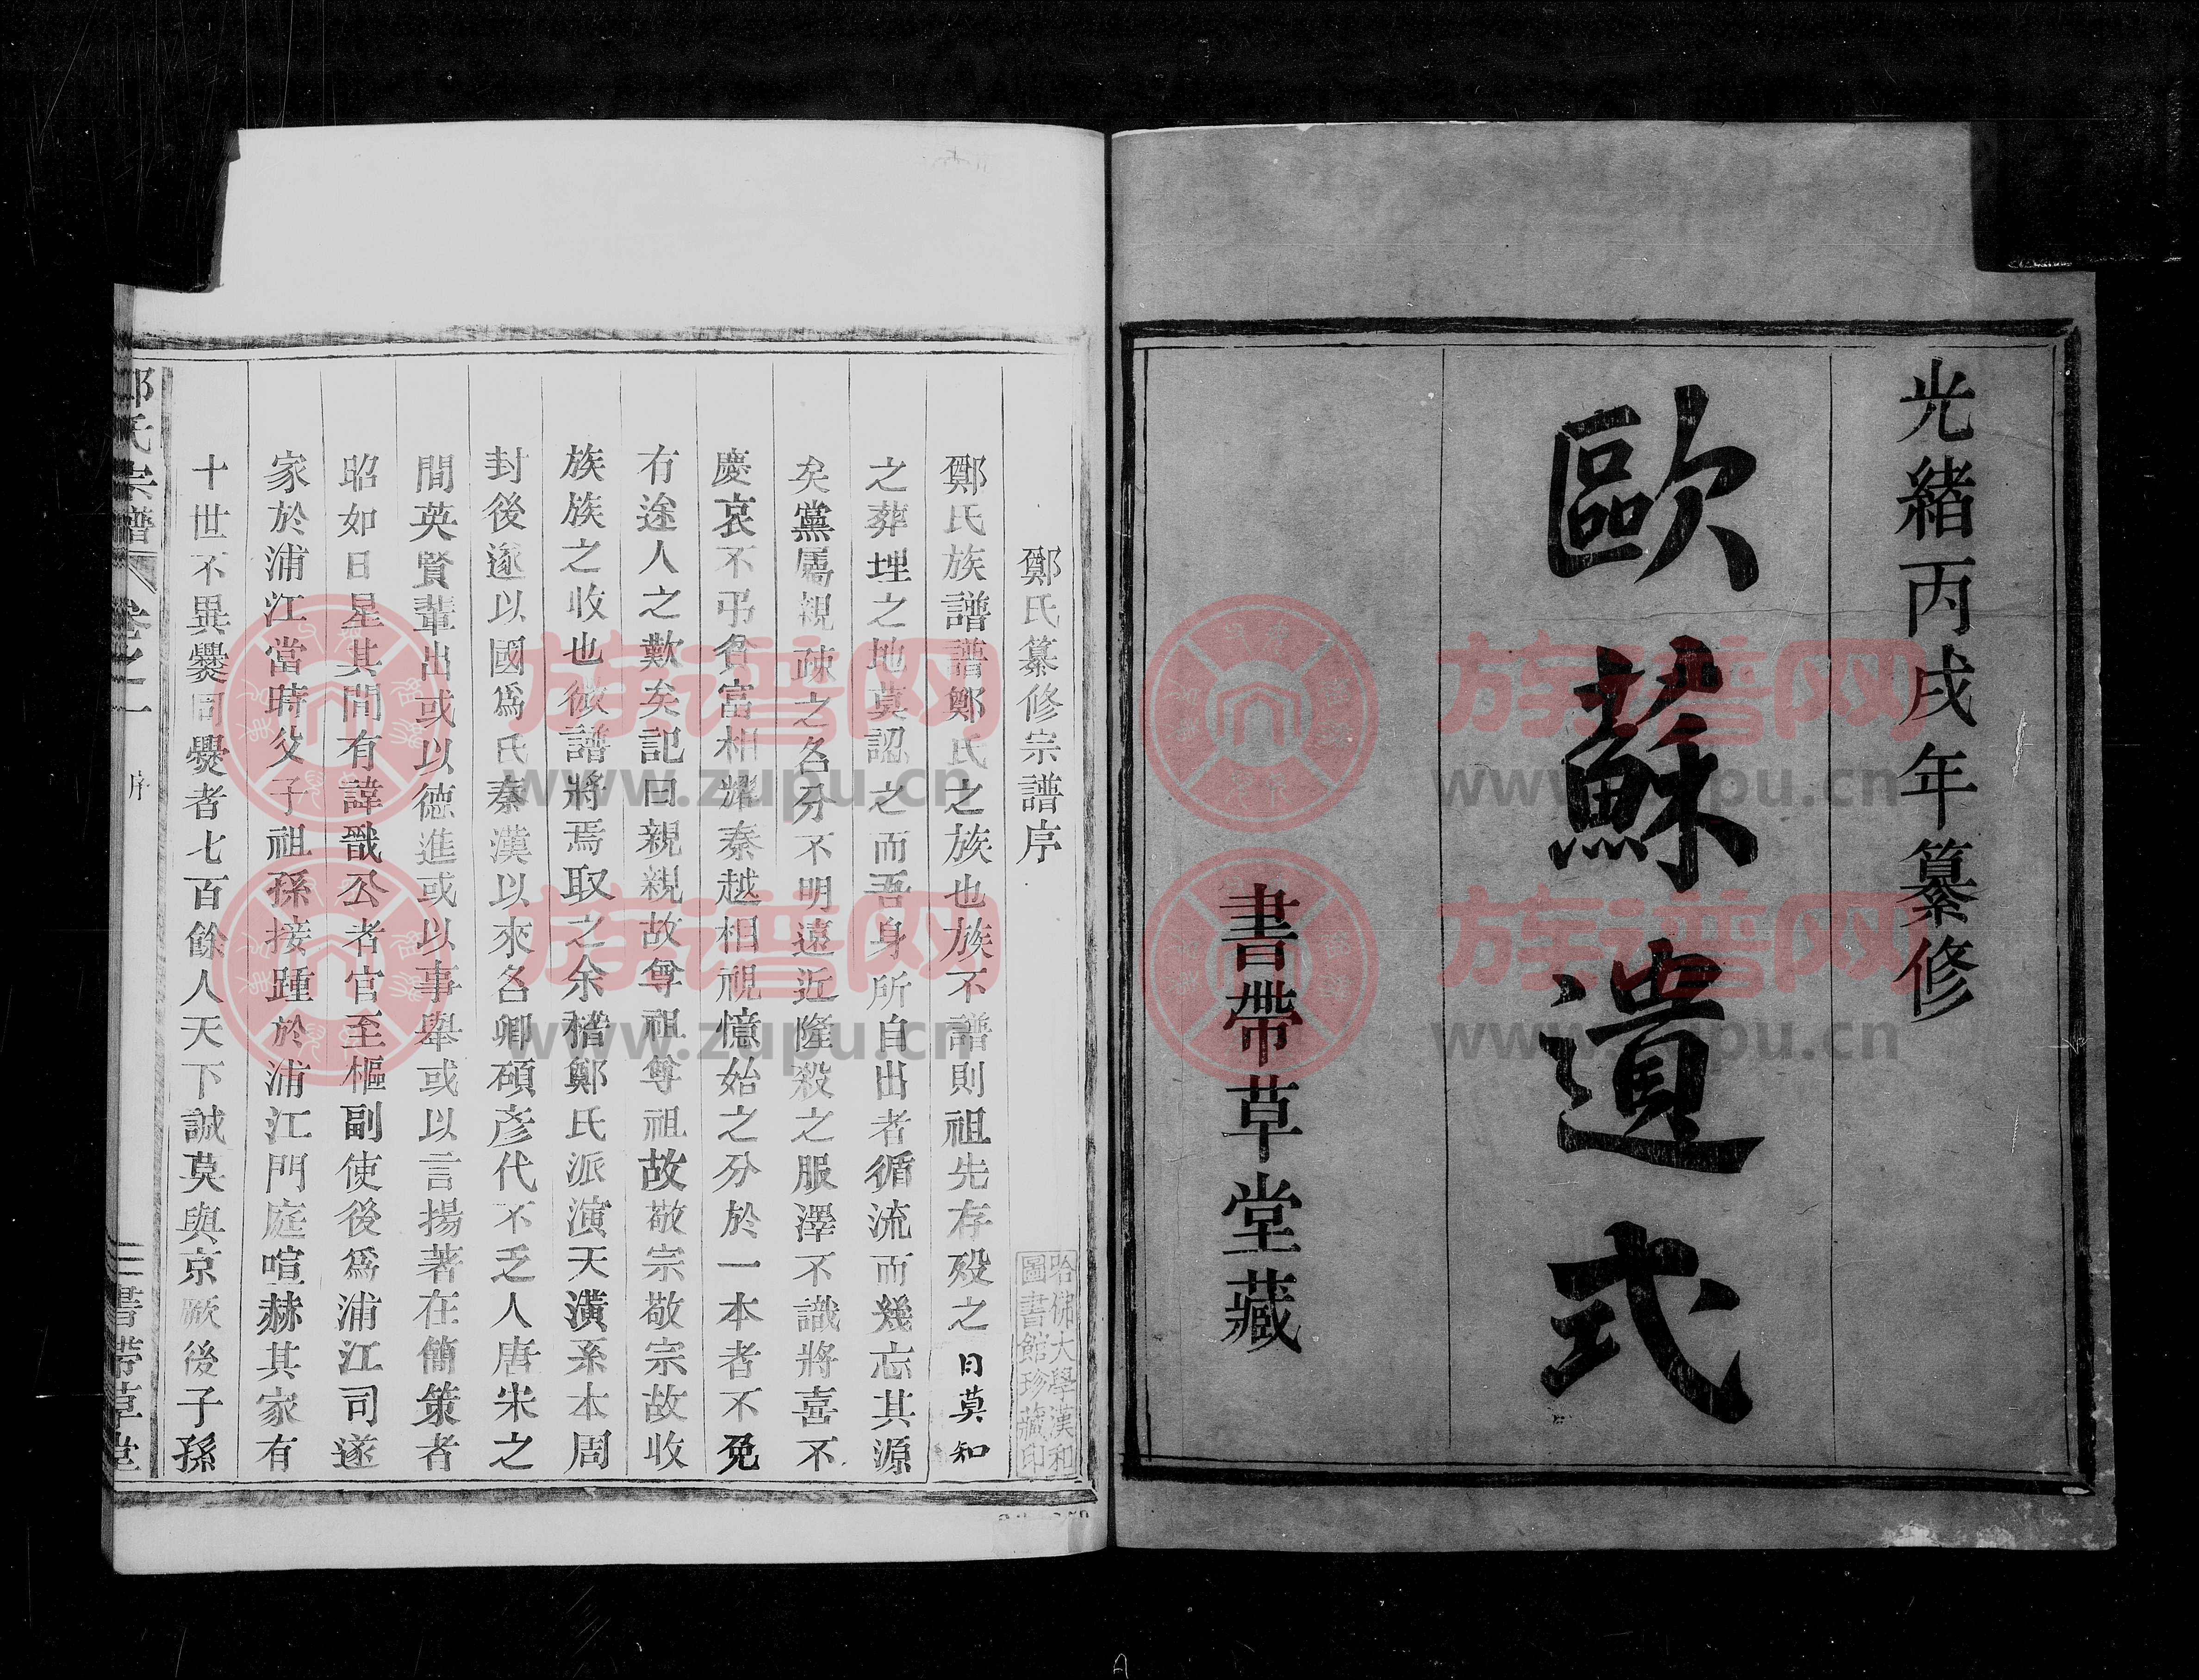 光緒丙戌年纂修
歐蘇遺式
書帶草堂藏
鄭氏纂修宗譜序
鄭氏族譜譜鄭氏之族也族不譜則祖先存歿之日莫知
之葬埋之地莫認之而吾身所自出者循流而幾忘其源
矣黨屬親疎之名分不明遠近隆殺之服澤不識將喜不
慶哀不弔貧富相耀秦越相視憶始之分於一本者不免
有途人之歎矣記曰親親故尊祖尊祖故敬宗敬宗故收
族族之收也微譜將焉取之余稽鄭氏派演天潢系本周
封後遂以國爲氏秦漢以來名卿碩彥代不乏人唐宋之
間英賢輩出或以德進或以事舉或以言揚著在簡策者
昭如日星其間有諱戩公者官至樞副使後爲浦江司遂
家於浦江當時父子祖孫接踵於浦江門庭喧赫其家有
十世不異爨同爨者七百餘人天下誠莫與京厥後子孫
鄭氏宗譜 卷之一 序 一 書帶草堂
哈佛大學漢和
圖書館珍藏印
族谱网
www.zupu.cn
族谱网
www.zupu.cn
族谱网
www.zupu.cn
族谱网
www.zupu.cn